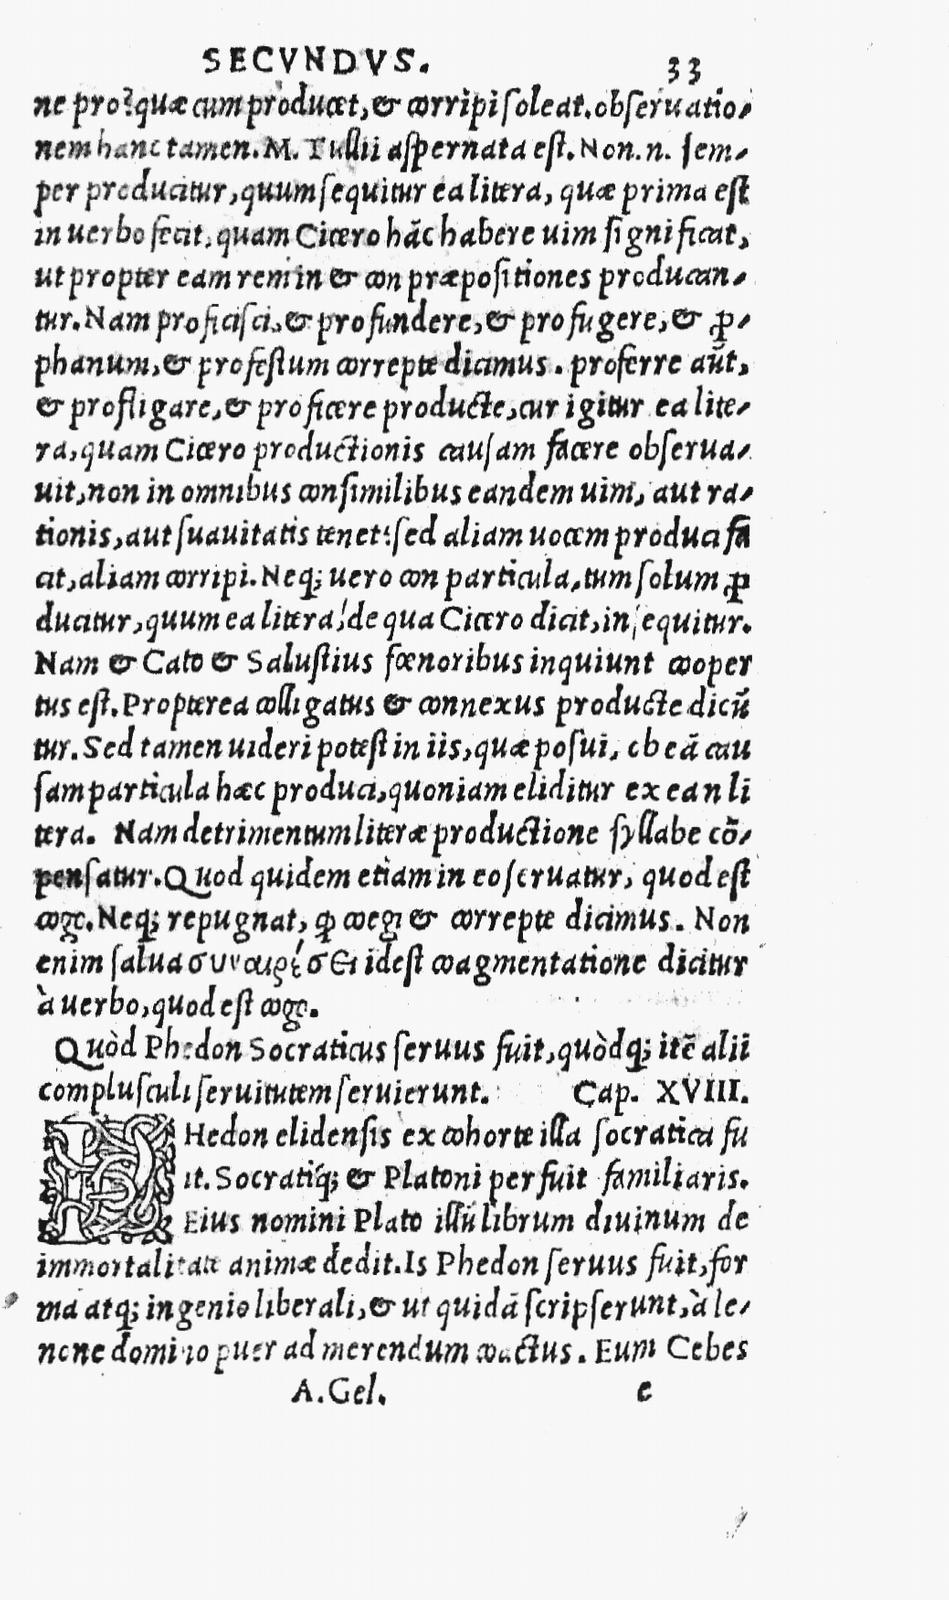 SECVNDVS. 33
ne pro? quæ cum producet, & corripi soleat. obseruatio-
nem hanc tamen. M. Tullii aspernata est. Non .n. sem-
per producitur, quum sequitur ea litera, quæ prima est
in uerbo fecit, quam Cicero hāc habere uim significat,
ut propter eam rem in & con præpositiones producan-
tur. Nam proficisci, & profundere, & profugere, & ꝓ-
phanum, & profestum correpte dicimus. proferre aūt,
& profligare, & proficere producte, cur igitur ea lite-
ra, quam Cicero productionis causam facere obserua-
uit, non in omnibus consimilibus eandem uim, aut ra-
tionis, aut suauitatis tenet: sed aliam uocem produci fa
cit, aliam corripi. Neq; uero con particula, tum solum ꝓ
ducitur, quum ea litera, de qua Cicero dicit, insequitur.
Nam & Cato & Salustius fœnoribus inquiunt cooper
tus est. Propterea colligatus & connexus producte dicū
tur. Sed tamen uideri potest in iis, quæ posui, ob eā cau
sam particula hæc produci, quoniam eliditur ex ea n li
tera. Nam detrimentum literæ productione syllabe cō-
pensatur. Quod quidem etiam in eo seruatur, quod est
cogo. Neq; repugnat, ꝙ coegi & correpte dicimus. Non
enim salua συναιρέσει idest coagmentatione dicitur
à uerbo, quod est cogo.
Quòd Phedon Socraticus seruus fuit, quòdq; itē alii
complusculi seruitutem seruierunt. Cap. XVIII.
PHedon elidensis ex cohorte illa socratica fu
it. Socratiq́; & Platoni per fuit familiaris.
Eius nomini Plato illū librum diuinum de
immortalitate animæ dedit. Is Phedon seruus fuit, for
ma atq; ingenio liberali, & ut quidā scripserunt, à le-
none domino puer ad merendum coactus. Eum Cebes
A. Gel. e